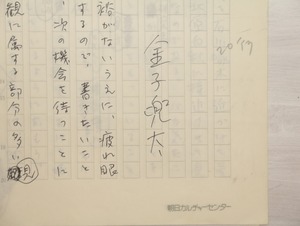 20 19
金子兜太
裕がないうえに、疲れ眼
するので、書きたいこと
、次の機会を待つことに
観に属する部分の多い
観
朝日カルチャーセンター